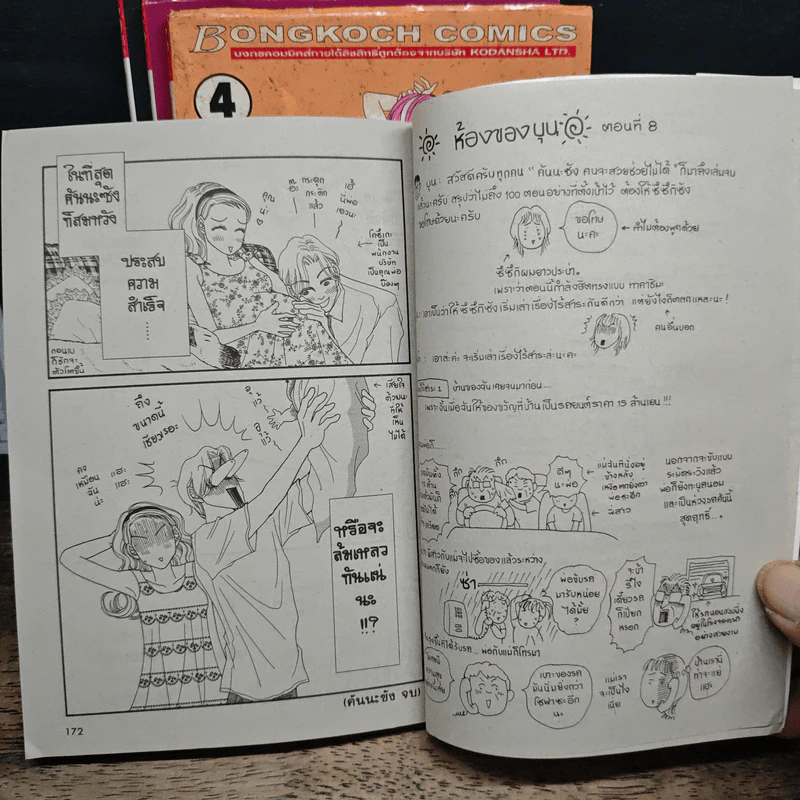 BONGKOCH COMICS
บงกชคอมมิคส์ภายใต้ลิขสิทธิ์ถูกต้องจากบริษัท KODANSHA LTD.
4
ในที่สุด
คันนะซัง
ก็สมหวัง
ประสบ
ความ
สำเร็จ
......
คุณ
น่ะ
กระดุก
กระดิก
แล้ว
เป็น
พนักงาน
บริษัท
เป็นคุณพ่อ
ถึง
ขนาดนี้
เชียวเรอะ
คง
เหมือน
ฉัน
น่ะ
แฮะ
แฮะ
เสียใจ
ด้วยนะ
ที่ให้
เห็น
ไม่ได้
หรือจะ
ล้มเหลว
กันแน่
นะ
!!?
(คันนะซัง จบ)
172
ห้องของบุนอุ๋ ตอนที่ 8
บุน : สวัสดีครับทุกคน "คันนะซัง คนจะสวยช่วยไม่ได้" ก็มาถึงเล่มจบ
แล้วนะครับ สรุปว่าไม่ถึง 100 ตอนอย่างที่ตั้งเป้าไว้ ต้องให้ซึซึกิซัง
ขอโทษด้วยนะครับ
ขอโทษ
นะคะ
ซึซึกิผมยาวประบ่า.
เพราะว่าตอนนี้กำลังฮิตทรงแบบ ทาคาชิมะ
เอาเป็นว่าให้ซึซึกิซังเริ่มเล่าเรื่องไร้สาระกันดีกว่า แต่ยังไงก็ตลกแหละนะ!
คนอื่นบอก
: เอาล่ะค่ะ จะเริ่มเล่าเรื่องไร้สาระล่ะนะคะ
บ้านของฉันเคยจนมาก่อน....
เพราะงั้นเมื่อฉันให้ของขวัญที่บ้านเป็นรถยนต์ราคา 15 ล้านเยน !!!
กึก
กึก
ดีๆ
นะพ่อ
แม่ฉันที่นั่งอยู่
ข้างหลัง
พี่สาว
นอกจากจะขับแบบ
ระมัดระวังแล้ว
พ่อก็ยังทะนุถนอม
และเป็นห่วงรถคันนี้
สุดฤทธิ์...
พี่สาวกับแม่จะไปซื้อของแล้วระหว่าง
ซ่า
พ่อขับรถ
มารับหน่อย
ได้มั้ย
?
จะบ้า
รึไง
เดี๋ยวรถ
ก็เปียก
หรอก
พอกับแม่ก็โทรมา
เบาะของรถ
มันนิ่มยิ่งกว่า
โซฟาซะอีก
นะ
แม่เรา
จะเป็นไง
เนี่ย
บ้านเรานี่
ท่าจะแย่
แฮะ